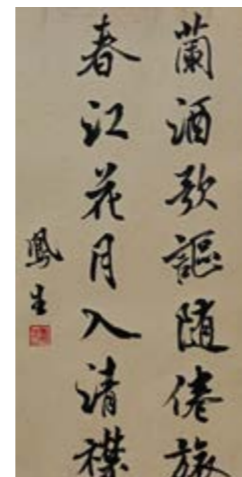 蘭酒歌謳随倦旅
春江花月入清襟
鳳生